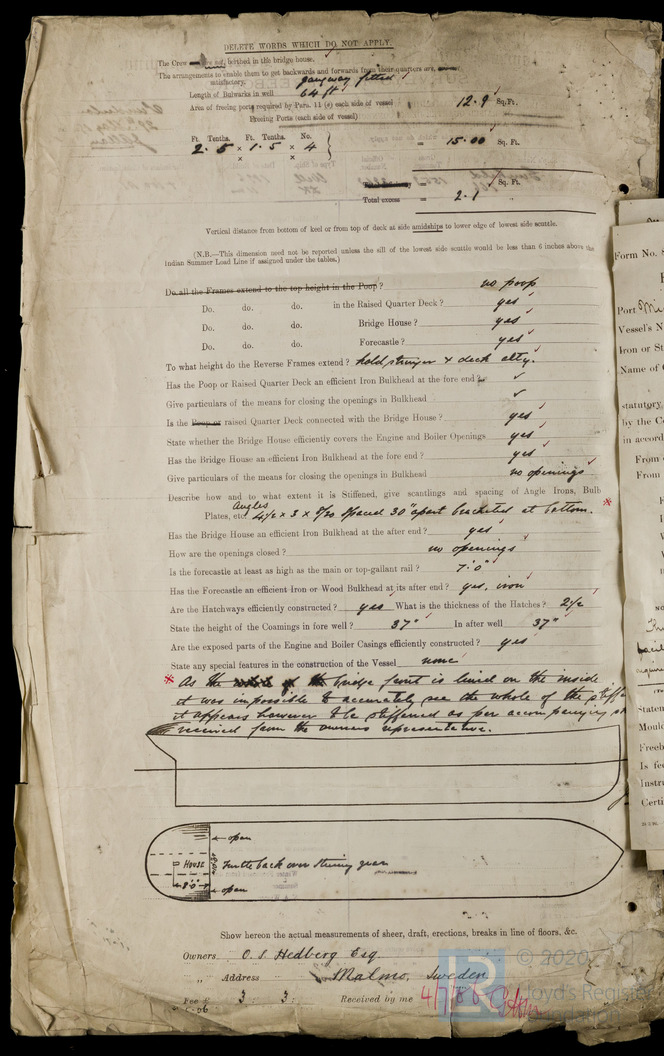 DELETE WORDS WHICH DO NOT APPLY.
The Crew are not berthed in the bridge house.
The arrangements to enable them to get backwards and forwards from their quarters are,
satisfactory. gangway fitted
Length of Bulwarks in well 64 ft
Area of freeing ports required by Para. 11 (e) each side of vessel 12.9 Sq. Ft.
Freeing Ports (each side of vessel)
Ft. Tenths. Ft. Tenths. No.
2.5 × 1.5 × 4 = 15.00 Sq. Ft.
× ×
= Sq. Ft.
Total excess = 2.1 "
Vertical distance from bottom of keel or from top of deck at side amidships to lower edge of lowest side scuttle.
(N.B.—This dimension need not be reported unless the sill of the lowest side scuttle would be less than 6 inches above the
Indian Summer Load Line if assigned under the tables.)
Do all the Frames extend to the top height in the Poop? no poop
Do. do. do. in the Raised Quarter Deck? yes
Do. do. do. Bridge House? yes
Do. do. do. Forecastle? yes
To what height do the Reverse Frames extend? hold stringer & deck altly.
Has the Poop or Raised Quarter Deck an efficient Iron Bulkhead at the fore end?
Give particulars of the means for closing the openings in Bulkhead
Is the Poop or raised Quarter Deck connected with the Bridge House? yes
State whether the Bridge House efficiently covers the Engine and Boiler Openings yes
Has the Bridge House an efficient Iron Bulkhead at the fore end? yes
Give particulars of the means for closing the openings in Bulkhead no openings
Describe how and to what extent it is Stiffened, give scantlings and spacing of Angle Irons, Bulb
Plates, etc. Angles 4½ × 3 × 8/20 spaced 30" apart bracketed at bottom. *
Has the Bridge House an efficient Iron Bulkhead at the after end? yes
How are the openings closed? no openings
Is the forecastle at least as high as the main or top-gallant rail? 7'0"
Has the Forecastle an efficient Iron or Wood Bulkhead at its after end? yes, iron
Are the Hatchways efficiently constructed? yes What is the thickness of the Hatches? 2½
State the height of the Coamings in fore well? 37" In after well 37"
Are the exposed parts of the Engine and Boiler Casings efficiently constructed? yes
State any special features in the construction of the Vessel none
* As the bridge front is lined on the inside
it was impossible to accurately see the whole of the stiff
it appears however to be stiffened as per accompanying
received from the owners representative.
open
HOUSE
Turtle back over steering gear
8'0"
open
Show hereon the actual measurements of sheer, draft, erections, breaks in line of floors, &c.
Owners O. S. Hedberg Esq.
" Address Malmo, Sweden
Fee £ 3 : 3 : Received by me 4/7/86
C-06
© 2020
Lloyd's Register
Foundation
Form No.
Port
Vessel's N
Iron or St
Name of
statutory
by the Co
in accord
From
From
Staten
Mould
Freeb
Is fee
Instru
Certi